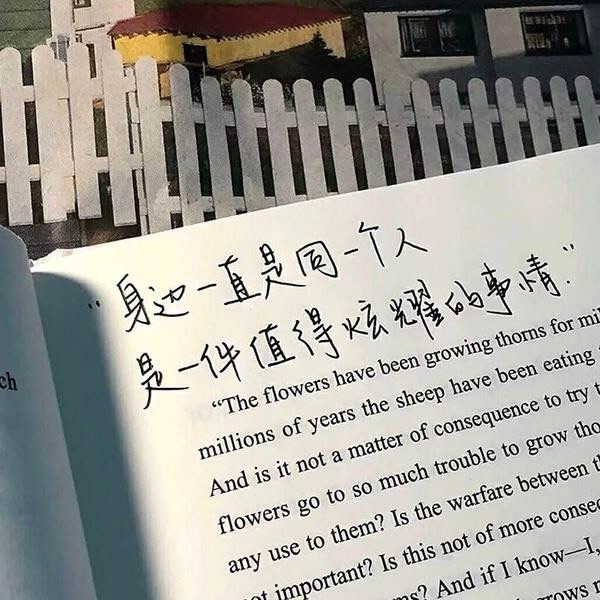 ch
"身边一直是同一个人
是一件值得炫耀的事情."
"The flowers have been growing thorns for
millions of years the sheep have been eating
And is it not a matter of consequence to try
flowers go to so much trouble to grow
any use to them? Is the warfare between
important? Is this not of more
And if I know—I,
grows